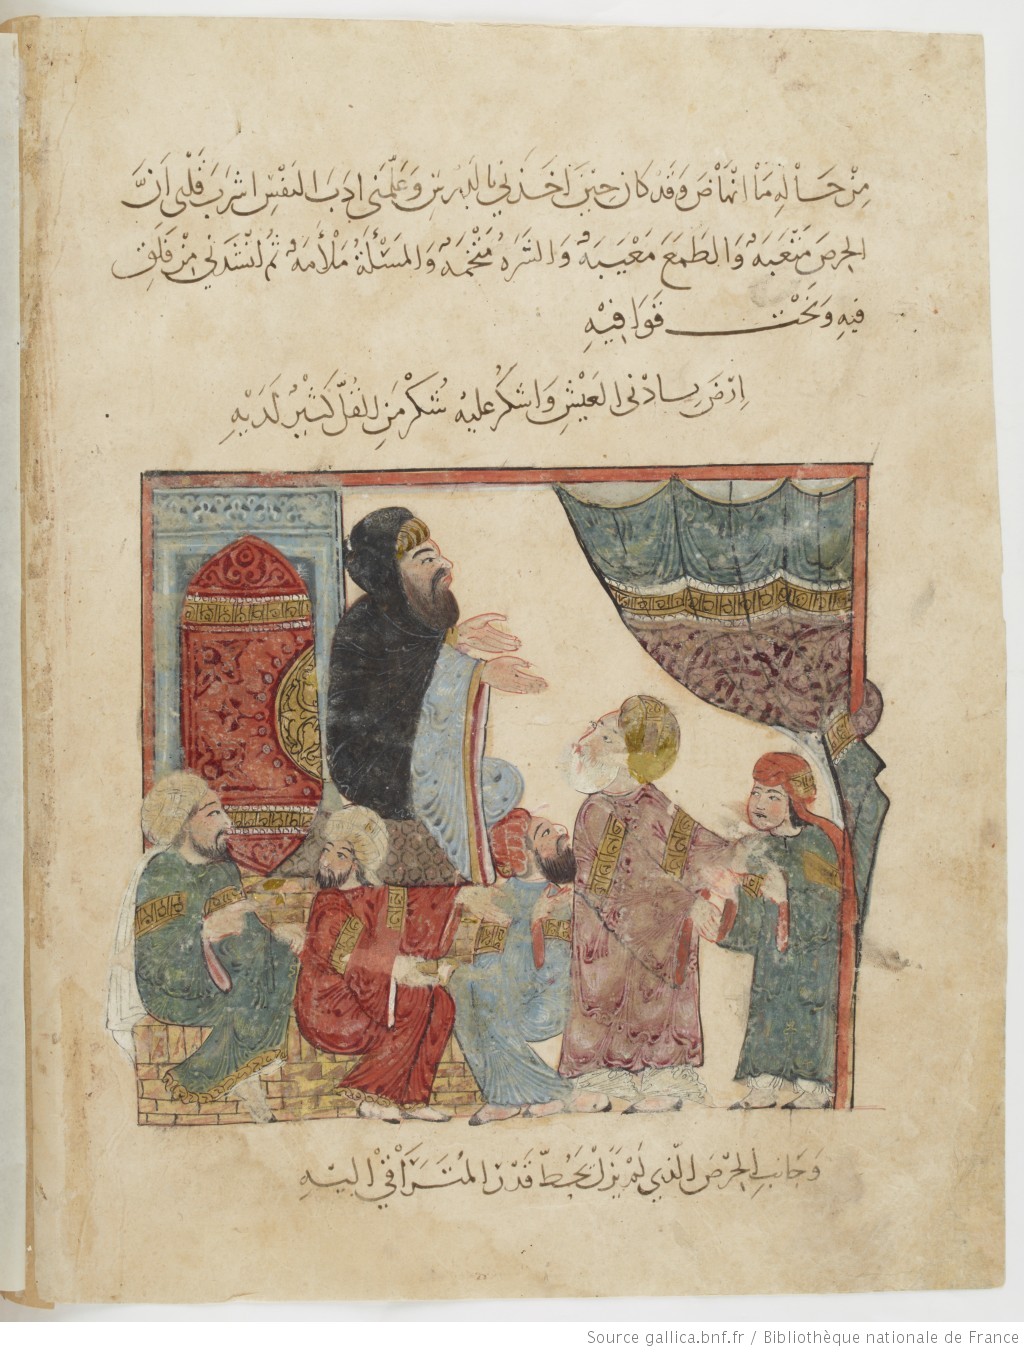 مِنْ حَالِهِ مَا انْهَاضَ وَقَدْ كَانَ حِيْنَ اَخَذَنِي بِالدَّرْسِ وَعَلَّمَنِي اَدَبَ النَفْسِ اشرَبَ قَلْبِى اَنَّ
الحِرصَ مَتْعَبَهٌ وَالطَمَعَ مَعْيَبَهٌ وَالشَرَهَ مَتْخَمَهٌ وَالمَسْئَلَةَ مَلْأَمَهٌ ثُمَّ انْشَدَنِي مِنْ فَلَقِ
فيهِ وَنَحْتِ قَوَافِيْهِ
اِرْضَ بِادْنَى العَيْشِ وَاشكُرْ عليهِ شُكْرَ مَنِ القُلُّ كَثِيْرٌ لَدَيْهِ
وَجَانِبِ الحِرْصَ الَّذِي لَمْ يَزَلْ يَحُطُّ قَدْرَ المُتَرَاقِيْ اِلَيْهِ
Source gallica.bnf.fr / Bibliothèque nationale de France